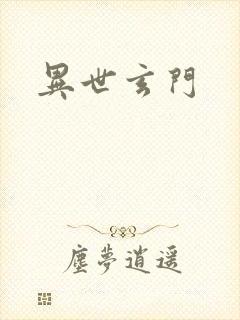 異世玄門
塵夢逍遥